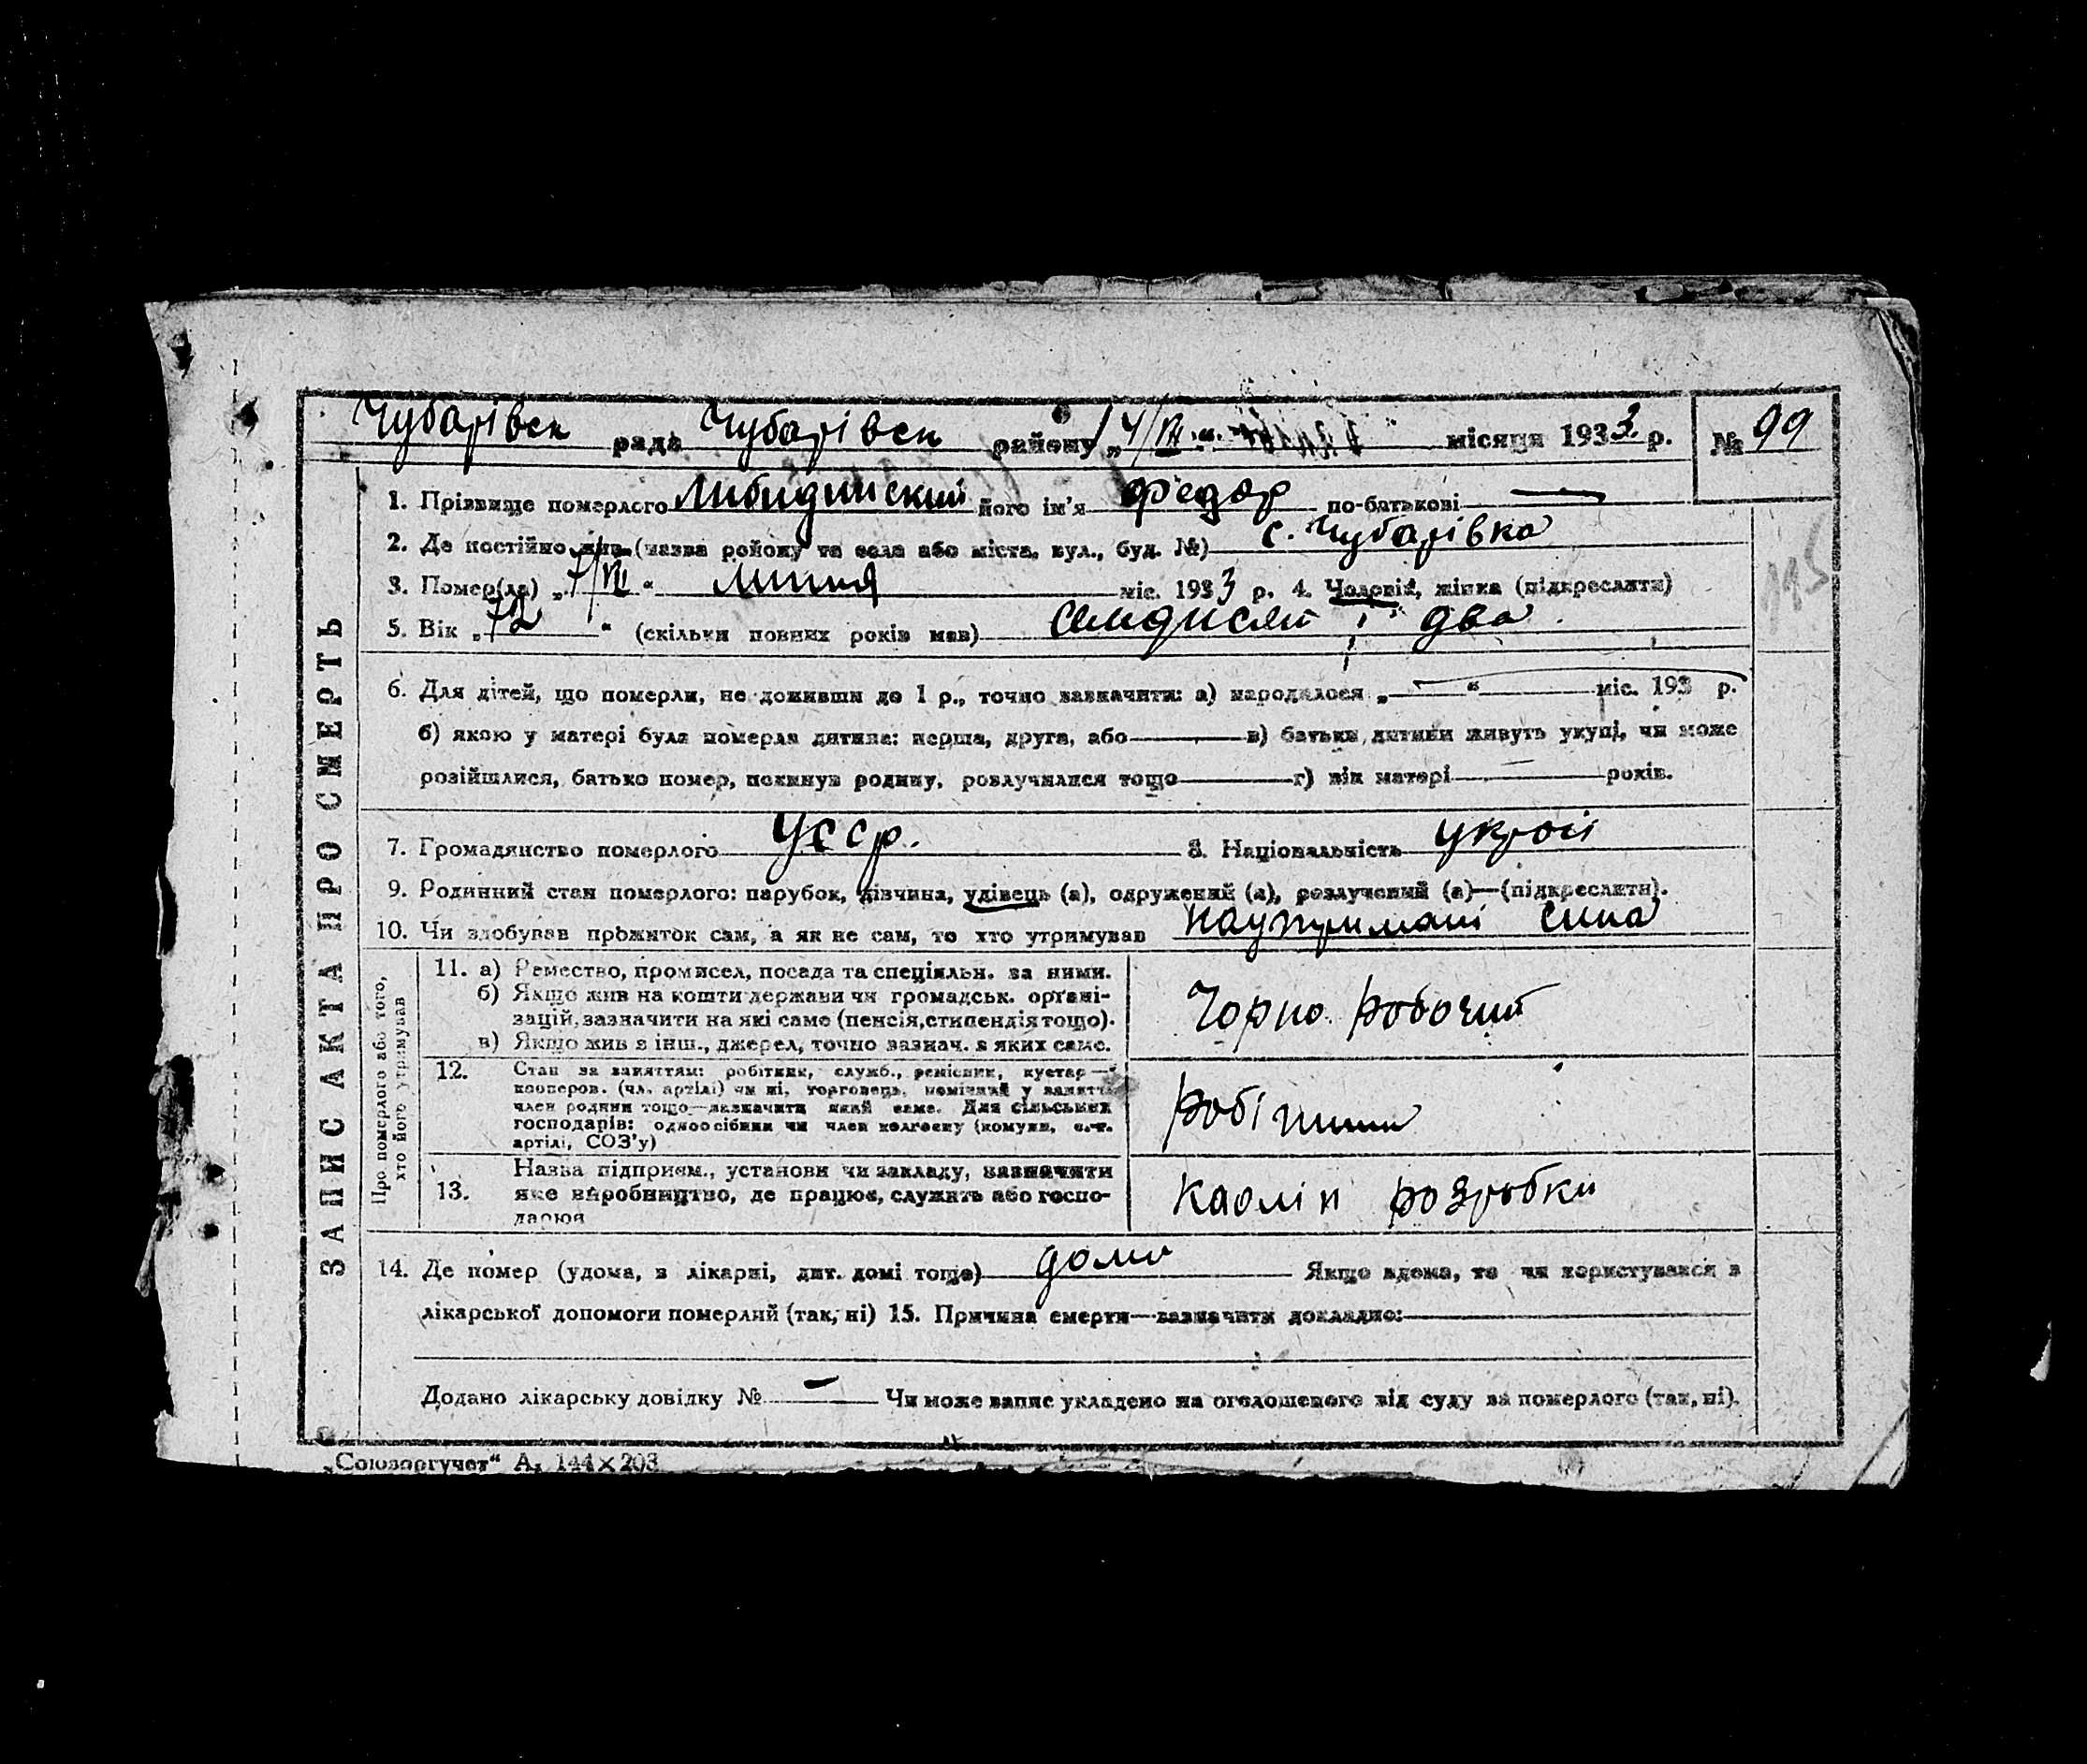 Чубарівськ рада Чубарівськ району „14/VII“ місяця 1933 р. № 99
1. Прізвище померлого Либидинский його ім'я Федор по-батькові —
2. Де постійно жив (назва ройону та села або міста, вул., буд. №) с. Чубарівка
3. Помер(ла) „7/VII“ липня міс. 1933 р. 4. Чоловік, жінка (підкреслити)
5. Вік „72“ (скільки повних років мав) семдисят і два
6. Для дітей, що померли, не доживши до 1 р., точно зазначити: а) народилося „—“ — міс. 193 р.
б) якою у матері була померла дитина: перша, друга, або — в) батьки дитини живуть укупі, чи може
розійшлися, батько помер, покинув родину, розлучилися тощо — г) вік матері — років.
7. Громадянство померлого УССР. 8. Національність украї
9. Родинний стан померлого: парубок, дівчина, удівець (а), одружений (а), розлучений (а)—(підкреслити).
10. Чи здобував прожиток сам, а як не сам, то хто утримував наутримані сина
ЗАПИС АКТА ПРО СМЕРТЬ
Про померлого або того, хто його утримував
11. а) Ремество, промисел, посада та спеціяльн. за ними.
б) Якщо жив на кошти держави чи громадськ. орґані-
зацій, зазначити на які саме (пенсія, стипендія тощо).
в) Якщо жив з інш., джерел, точно зазнач. з яких саме.
Чорно робочий
12. Стан за заняттям: робітник, служб., ремісник, кустар—
кооперов. (чл. артілі) чи ні, торговець, помічний у занятті
член родини тощо—зазначити який саме. Для сільських
господарів: одноосібник чи член колгоспу (комуни, с.-г.
артілі, СОЗ'у)
13. Назва підприєм., установи чи закладу, зазначити
яке виробництво, де працює, служить або госпо-
дарює
Каолін розробки
14. Де помер (удома, в лікарні, дит. домі тощо) дома Якщо вдома, то чи користувався з
лікарської допомоги померлий (так, ні) 15. Причина смерти—зазначити докладно:
Додано лікарську довідку № — Чи може запис укладено на оголошеного від суду за померлого (так, ні).
„Союзоргучет“ А, 144×203